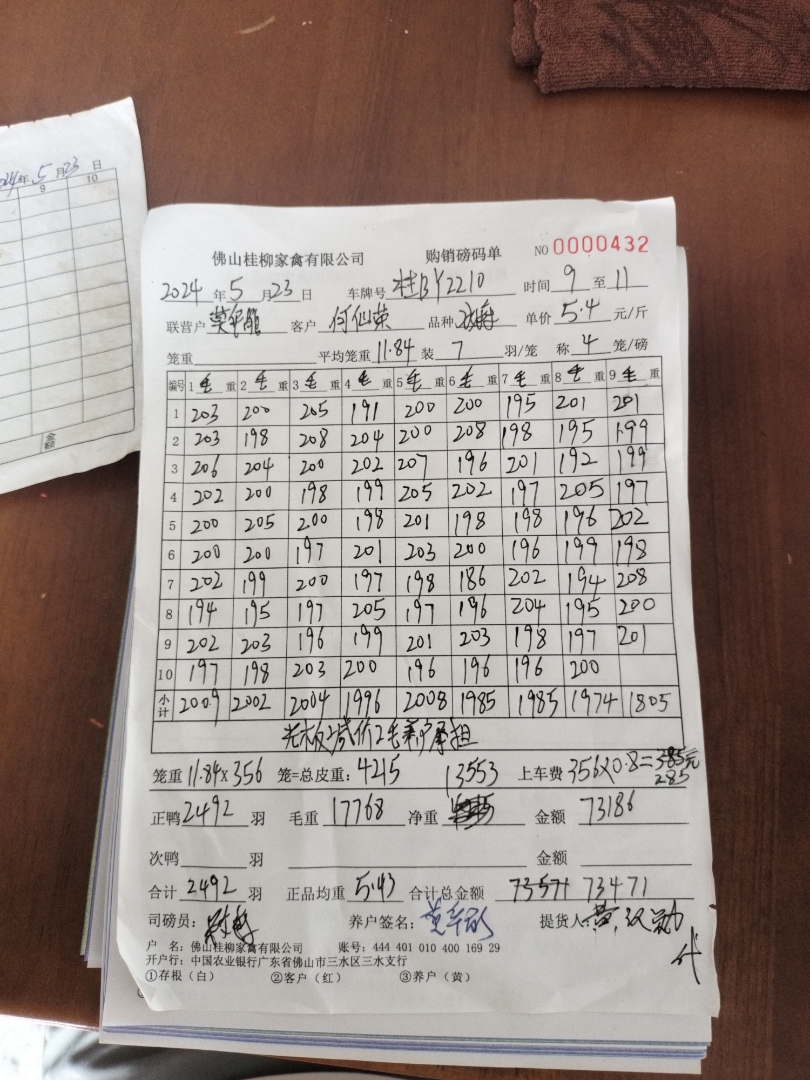 2024年5月23日
9 10
金额
佛山桂柳家禽有限公司 购销磅码单 NO 0000432
2024年5月23日 车牌号 桂BY2210 时间 9 至 11
联营户 客户 何仙荣 品种 单价 5.4 元/斤
笼重 平均笼重 11.84 装 7 羽/笼 称 4 笼/磅
编号 1毛重 2毛重 3毛重 4毛重 5毛重 6毛重 7毛重 8毛重 9毛重
1 203 200 205 191 200 200 195 201 201
2 203 198 208 204 200 208 198 195 199
3 206 204 200 202 207 196 201 192 199
4 202 200 198 199 205 202 197 205 197
5 200 205 200 198 201 198 198 196 202
6 200 200 197 201 203 200 196 199 198
7 202 199 200 197 198 186 202 194 208
8 194 195 197 205 197 196 204 195 200
9 202 203 196 199 201 203 198 197 201
10 197 198 203 200 196 196 196 200
小计 2009 2002 2004 1996 2008 1985 1985 1974 1805
减价2毛养户承担
笼重 11.84×356 笼=总皮重: 4215 13553 上车费 356×0.8=385元
285
正鸭 2492 羽 毛重 17768 净重 金额 73186
次鸭 羽 金额
合计 2492 羽 正品均重 5.43 合计总金额 73571 73471
司磅员: 养户签名: 提货人: 黄
代
户 名: 佛山桂柳家禽有限公司 账号: 444 401 010 400 169 29
开户行: 中国农业银行广东省佛山市三水区三水支行
①存根（白） ②客户（红） ③养户（黄）